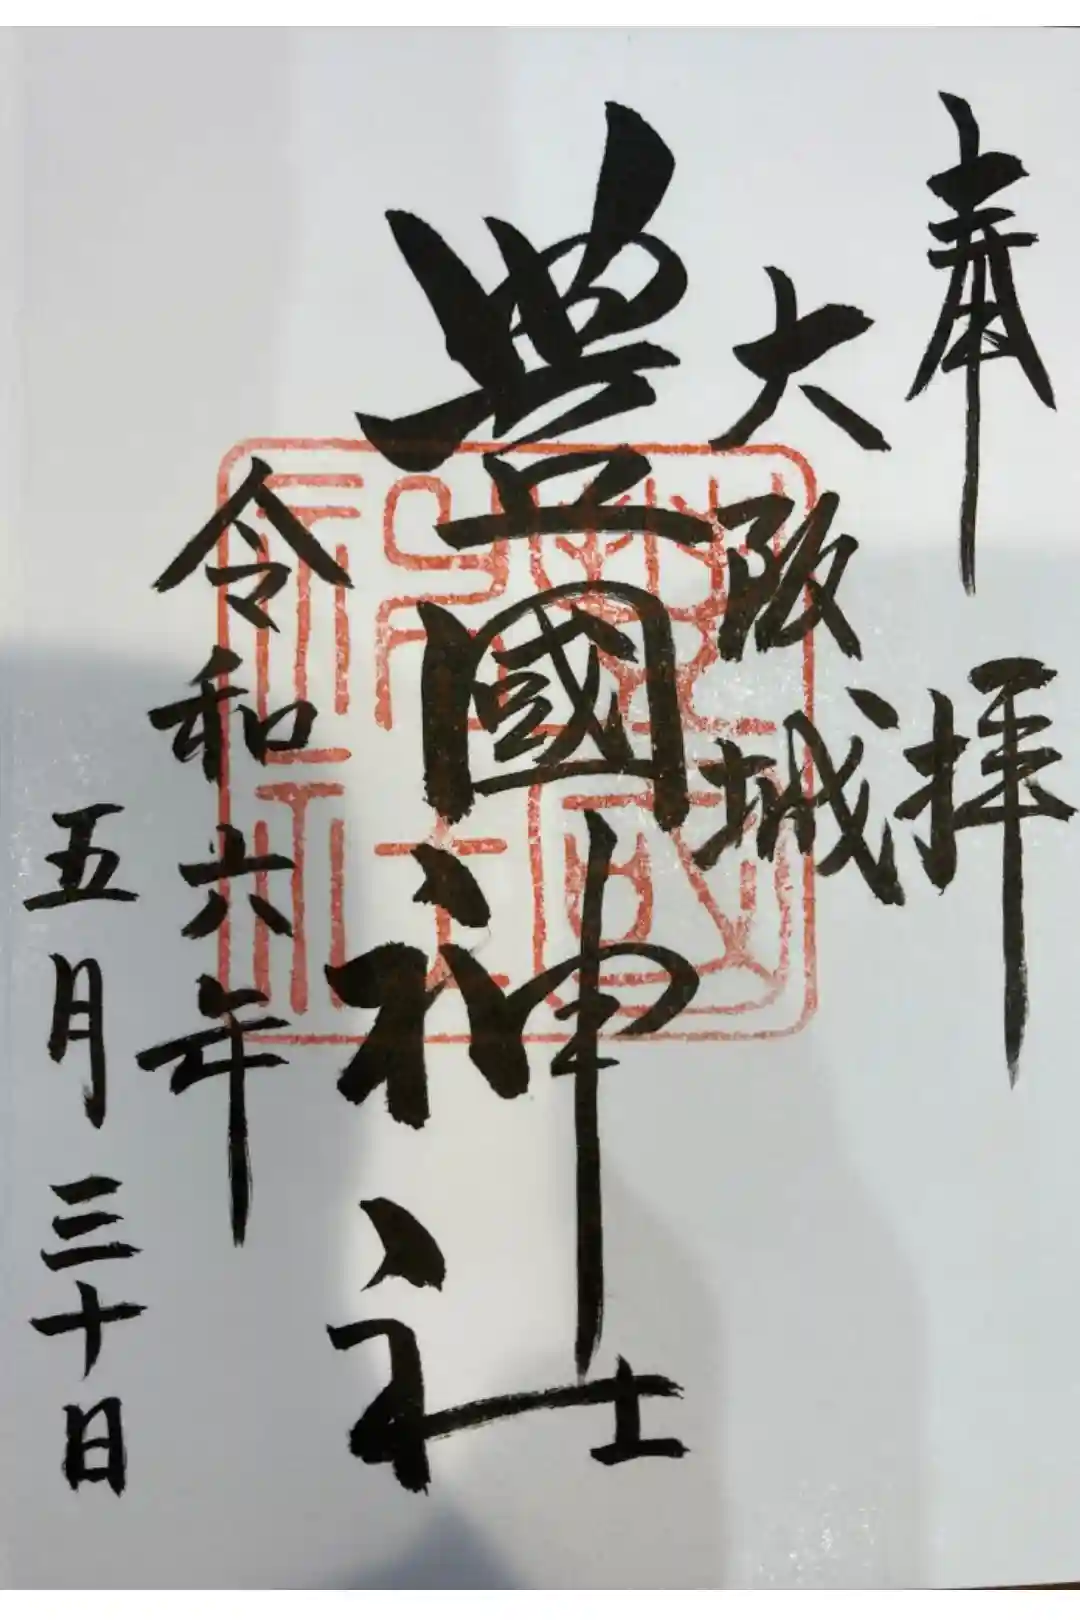 奉拝
大阪城
豊國神社
令和六年
五月三十日